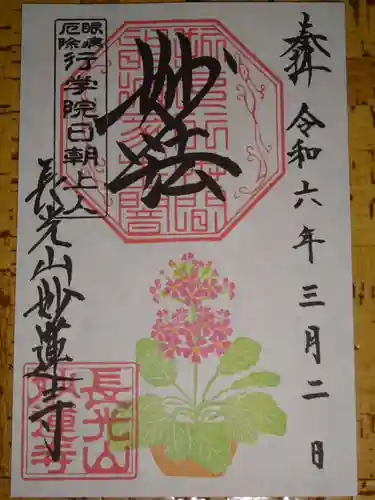 奉拝
令和六年三月二日
妙法
眼病
厄除
行学院日朝上人
長光山妙蓮寺
長光山
妙蓮寺